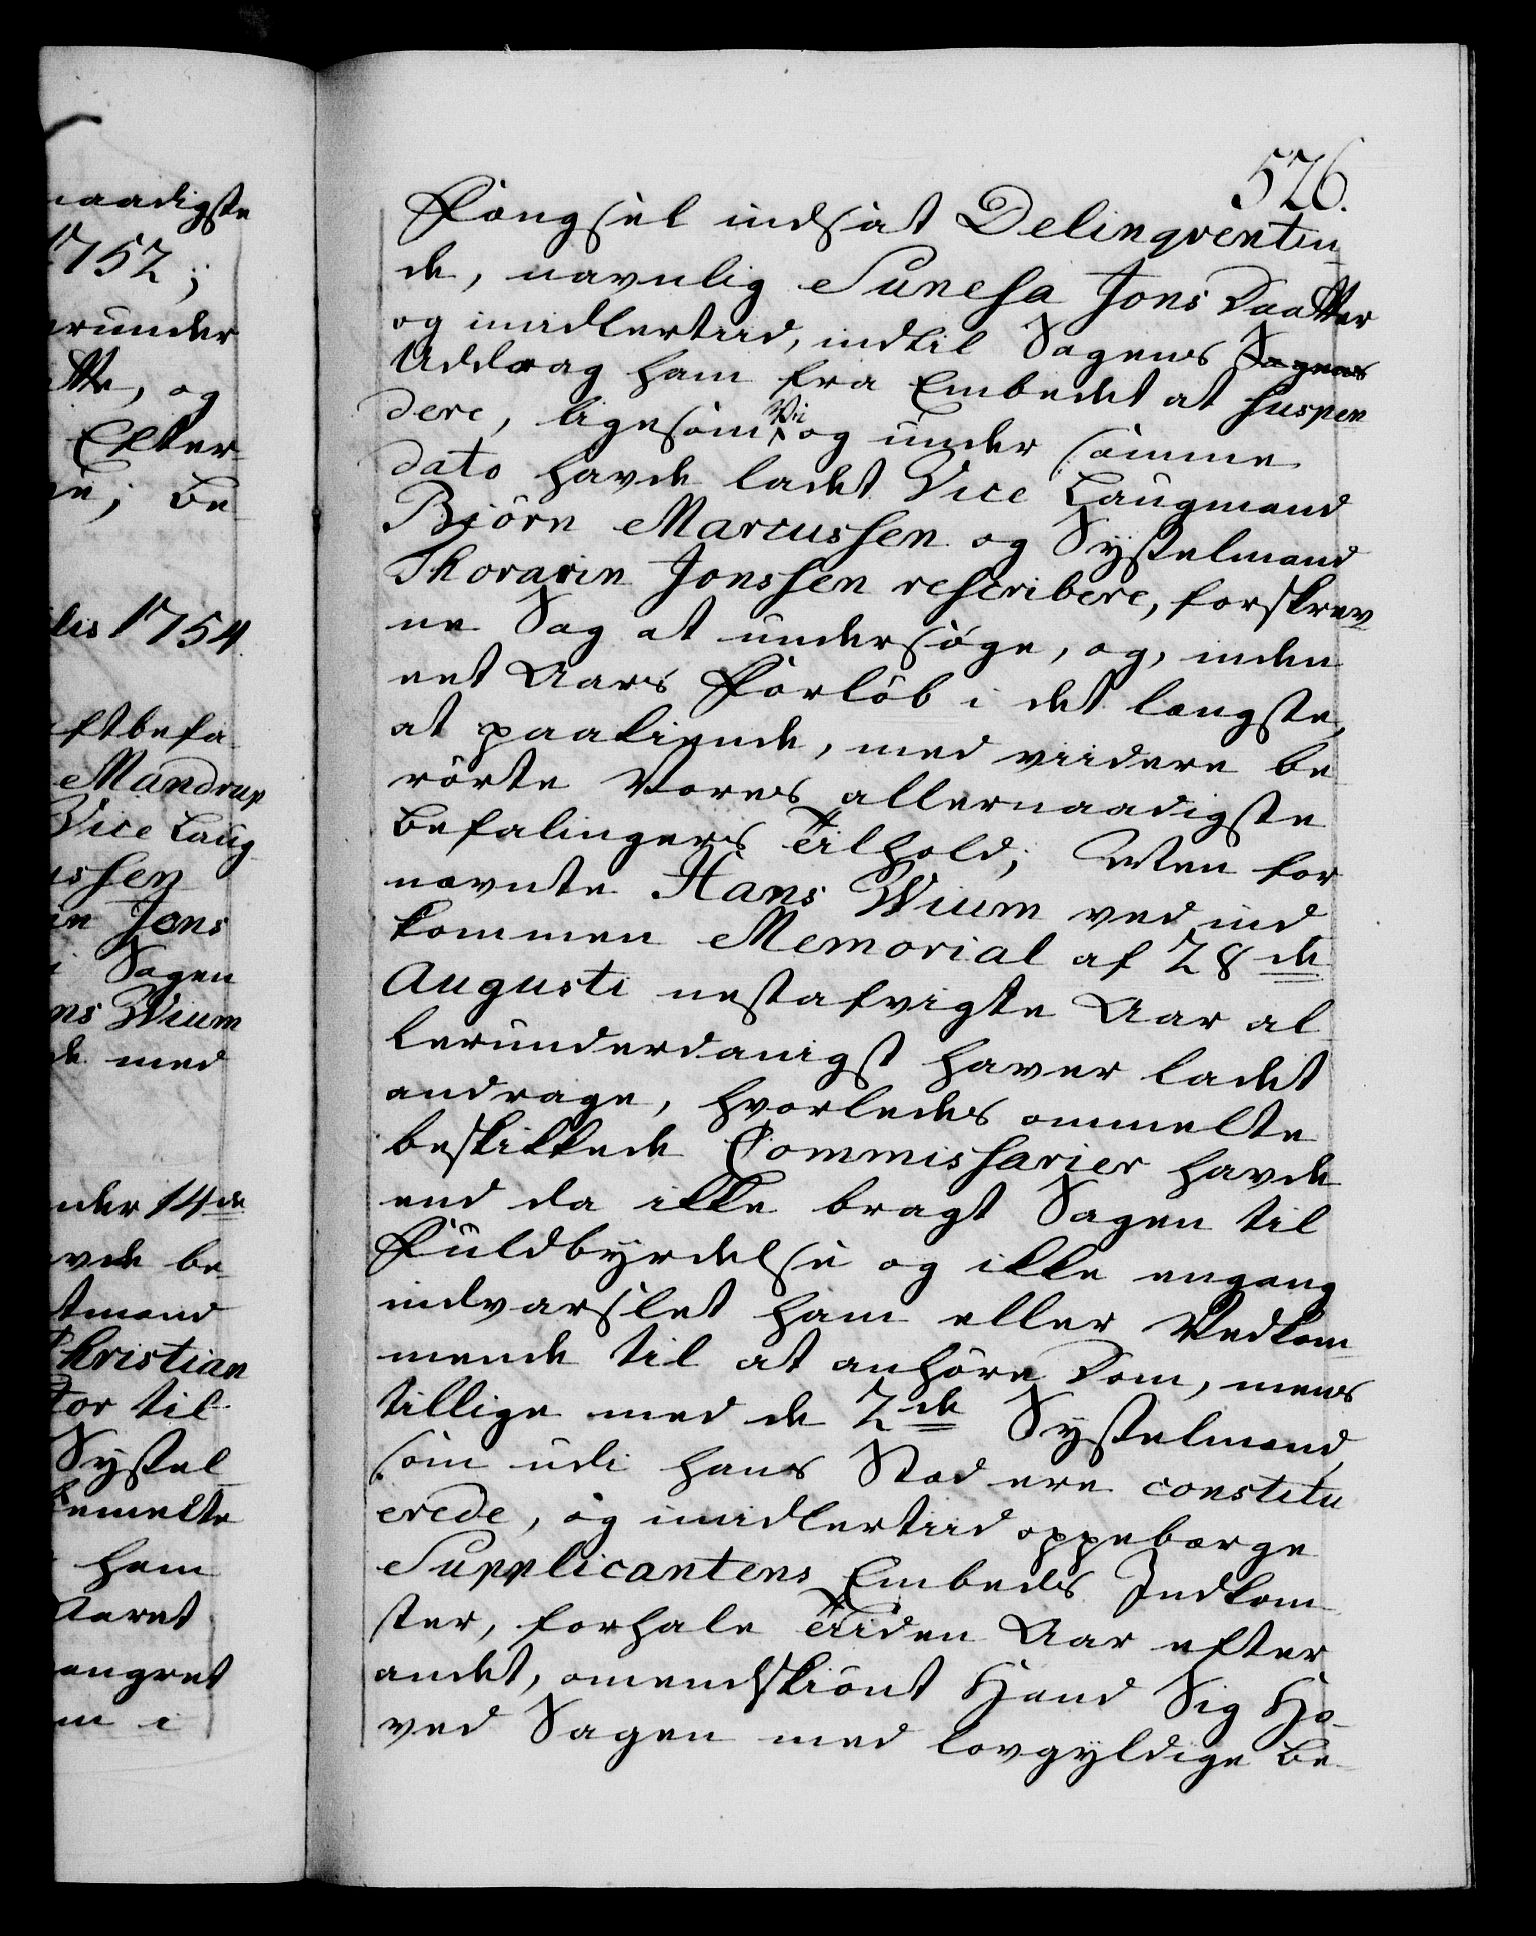 naadigste
1752;
runder
tte, og
Efter
be
lis 1754.
ftbefa
Mandrup
Vice Laug
ssen
in Jons
i Sagen
ns Wium
de med
nder 14de
vde be
tmand
Christian
tor til
Syssel
bemelte
ham
Aaret
fængslet
m i
526.
Fængsel indsat Delinqventin
de, navnlig Sunesa Jons Daatter
og imidlertiid, indtil Sagens Sagens
Uddrag ham fra Embedet at suspen
dere, ligesom Vi og under samme
dato havde ladet Vice Laugmand
Biörn Marcussen og Sysselmand
Thorarin Jonssen rescribere, forskrev
ne Sag at undersøge, og, inden
eet Aars Forløb i det længste,
at paakiende, med viidere be
rörte Vores allernaadigste
Befalingers Tilhold; Men for
nævnte Hans Wium ved ind
kommen Memorial af 28de
Augusti nestafvigte Aar al
lerunderdanigst haver ladet
andrage, hvorledes ommelte
beskikkede Commissarier havde
end da ikke bragt Sagen til
Fuldbyrdelse og ikke engang
indvarslet ham eller Vedkom
mende til at anhøre Dom, mens
tillige med de 2de Sysselmænd,
som udi hans Stad ere constitu
erede, og imidlertiid oppebærge
Supplicantens Embeds Indkom
ster, forhale Tiiden Aar efter
andet, omendskiönt Hand Sig Ho-
ved Sagen med lovgyldige Be-